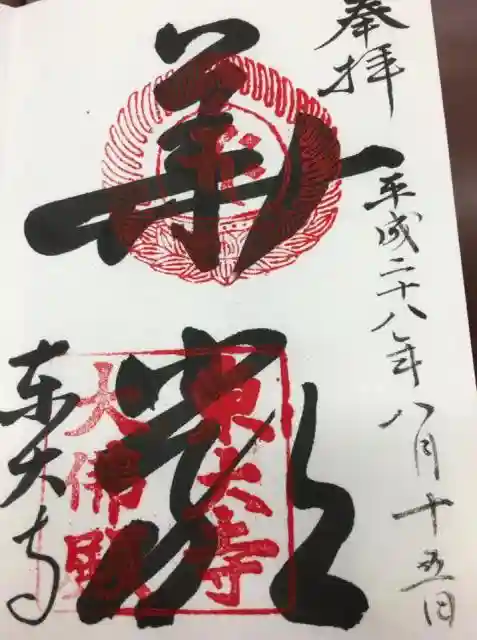 奉拝
平成二十八年八月十五日
華嚴
東大寺
大佛殿
東大寺